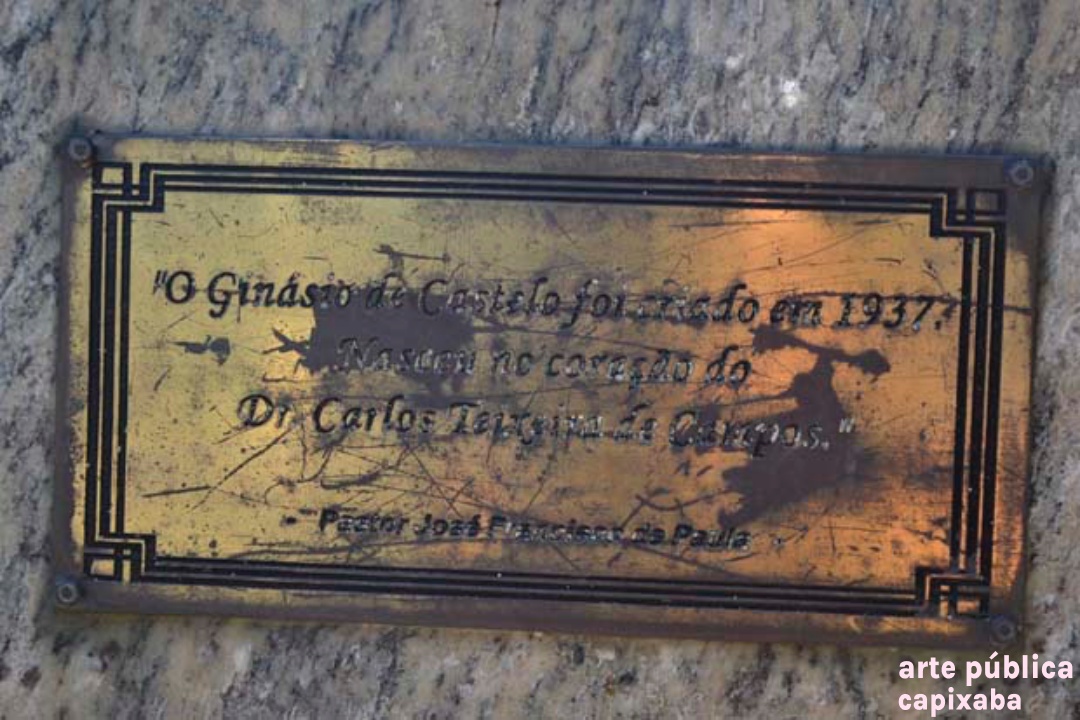 "O Ginásio de Castelo foi criado em 1937.
Nasceu no coração do
Dr. Carlos Teixeira de Campos."
Pastor José Francisco de Paula
arte pública
capixaba